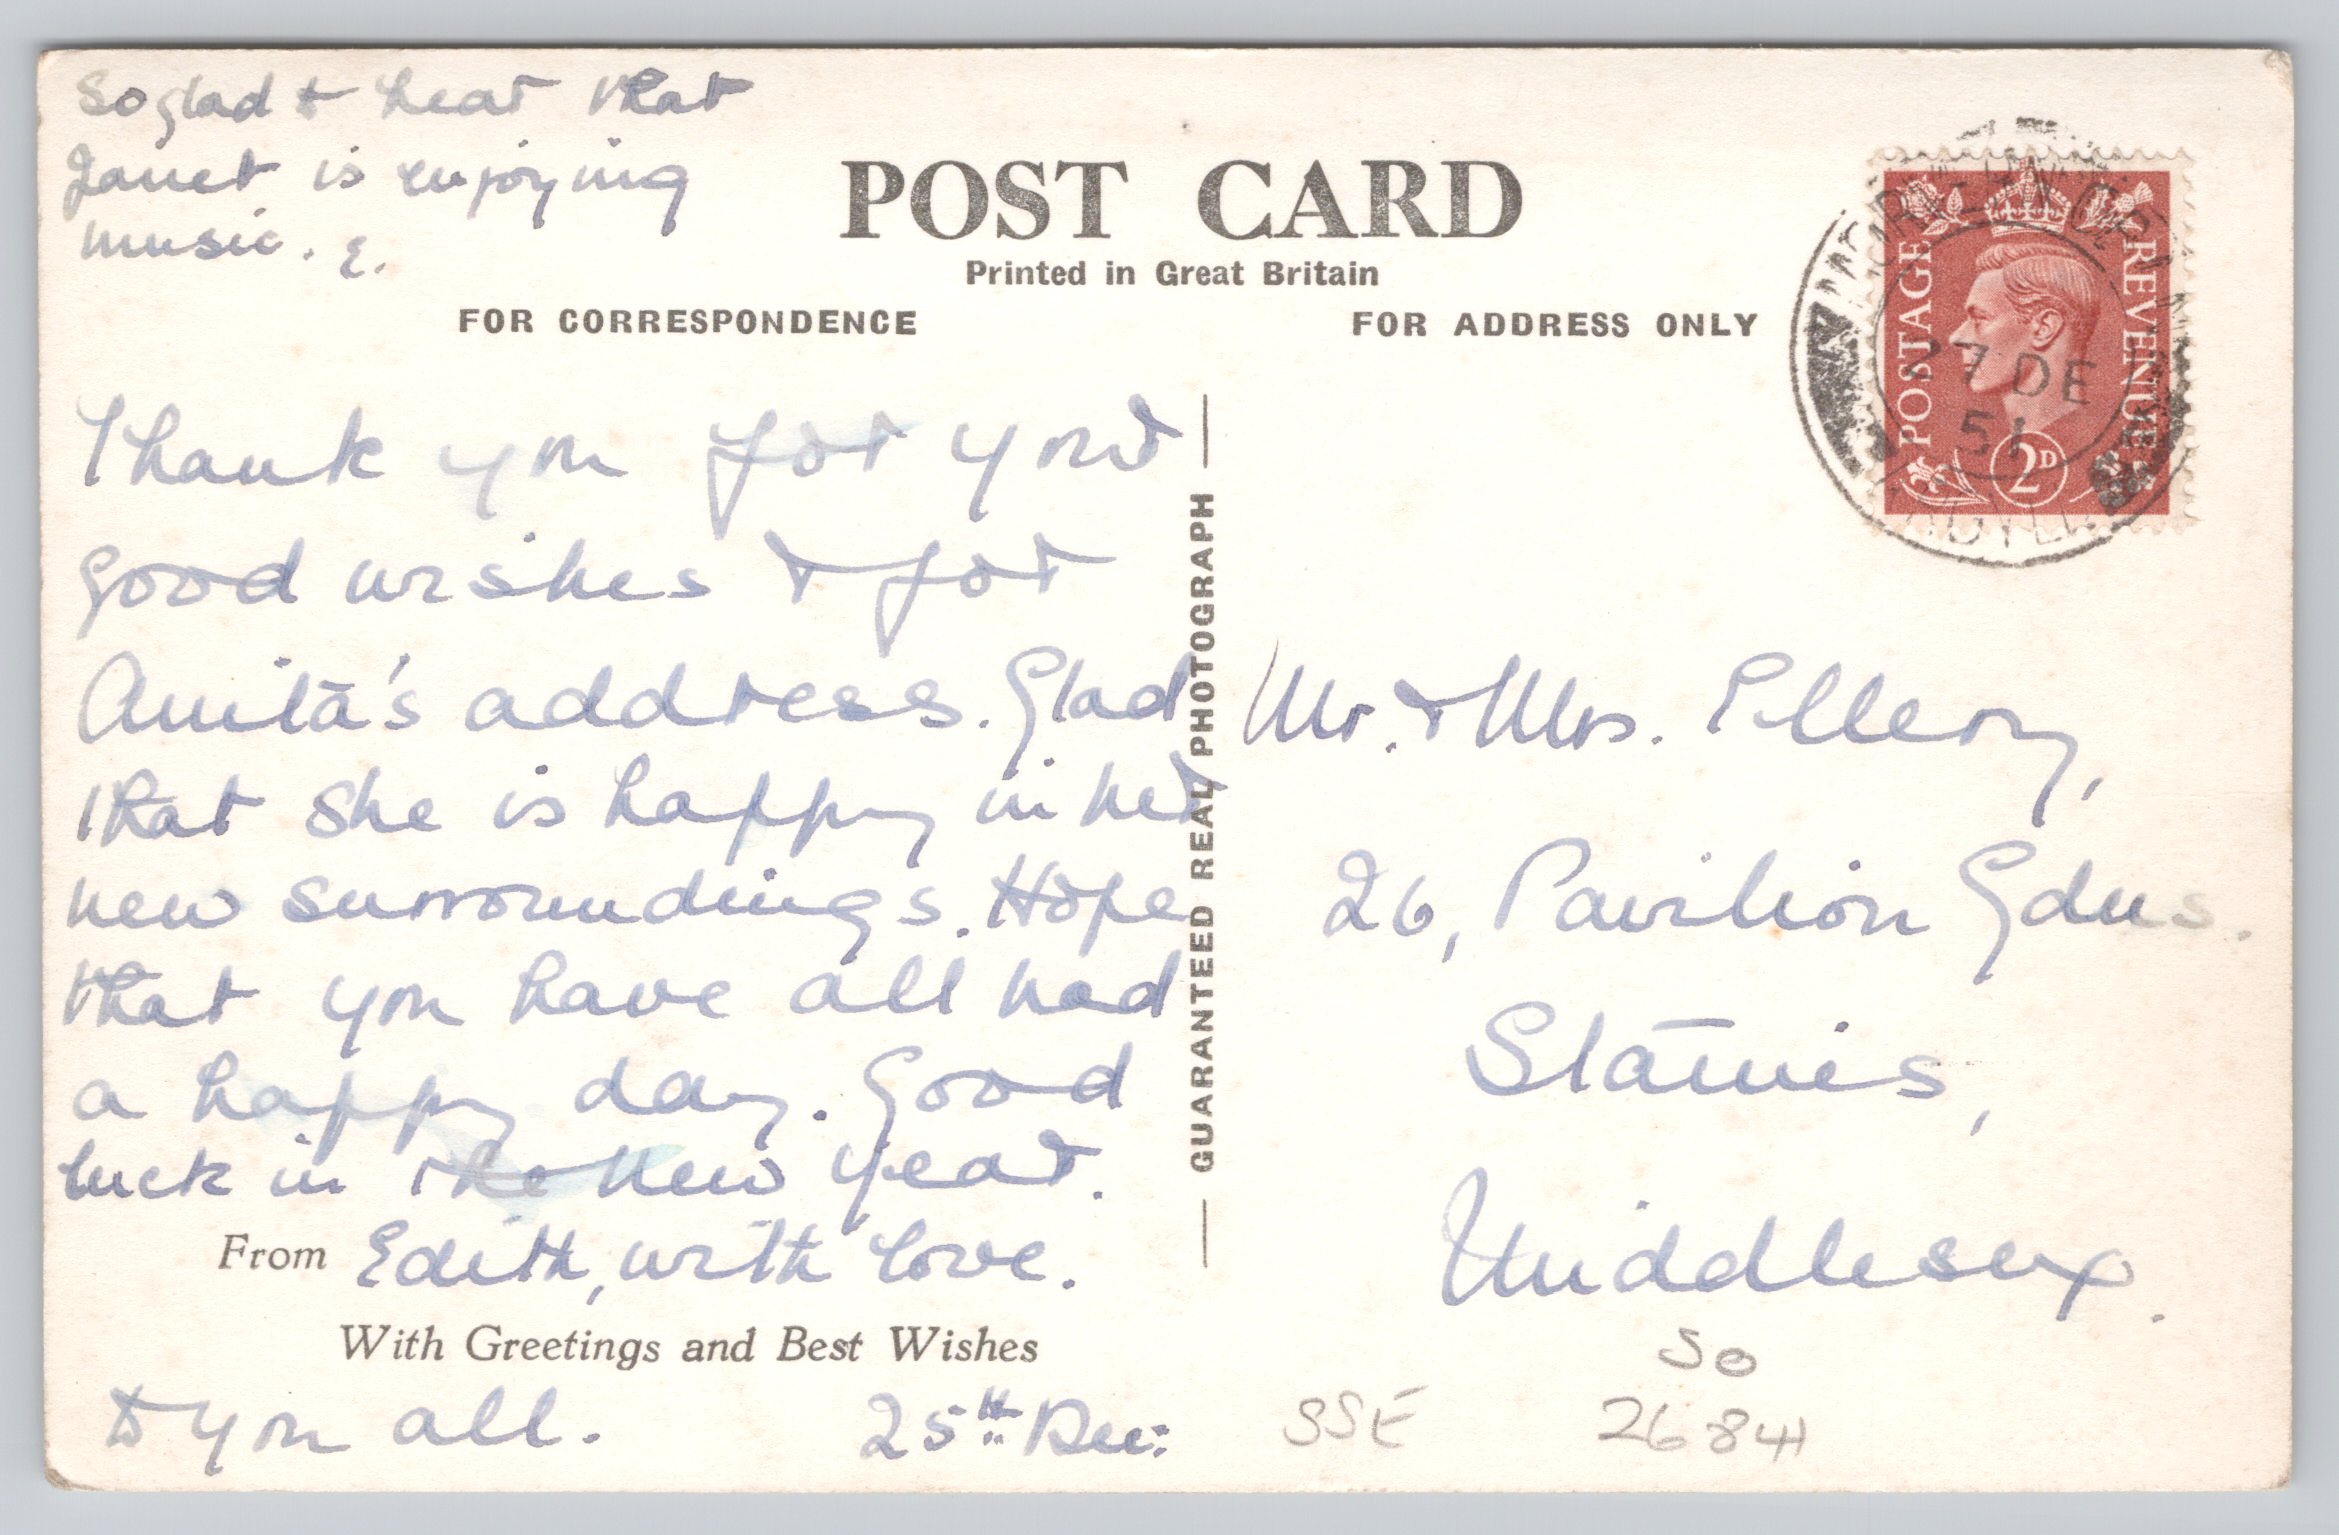 So glad to hear that
Janet is enjoying
music. E.
POST CARD
Printed in Great Britain
FOR CORRESPONDENCE
FOR ADDRESS ONLY
POSTAGE
REVENUE
2D
27 DE
51
Thank you for your
good wishes & for
Anita's address. Glad
that she is happy in her
new surroundings. Hope
that you have all had
a happy day. Good
luck in the New Year.
From Edith, with love.
With Greetings and Best Wishes
to you all. 25th Dec:
GUARANTEED REAL PHOTOGRAPH
Mr. & Mrs. Ellery,
26, Pavilion Gdns.
Staines,
Middlesex.
50
SSE 26841